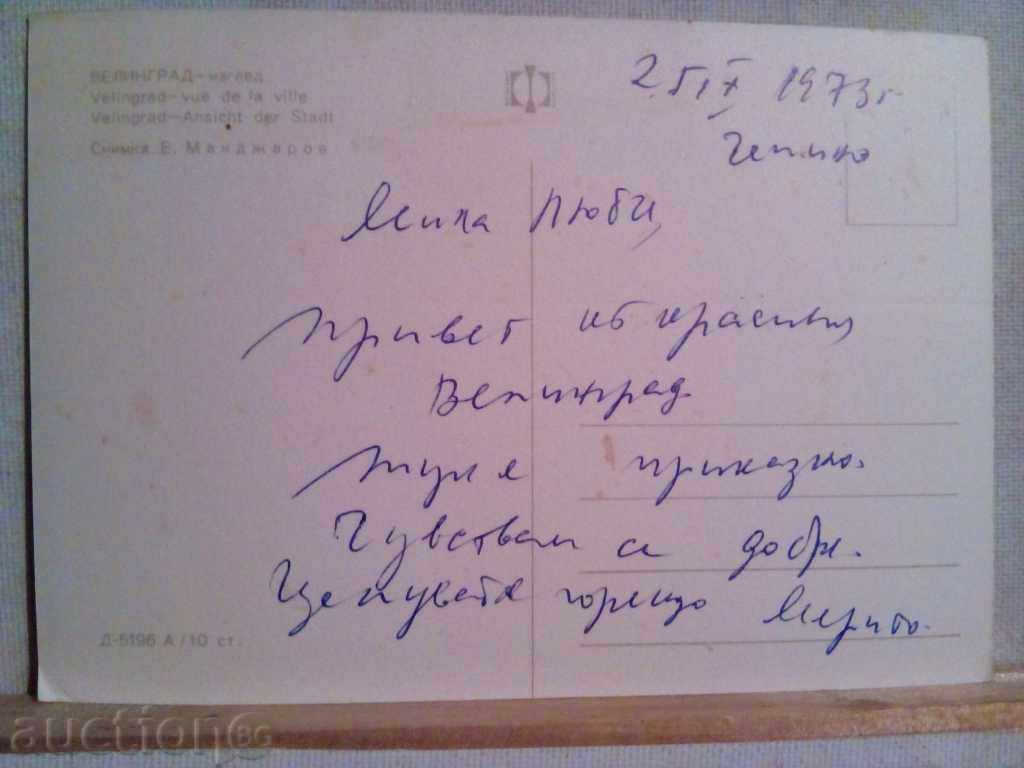 ВЕЛИНГРАД—изглед
Velingrad—vue de la ville
Velingrad—Ansicht der Stadt
Снимка В. Манджаров
2.5.IX 1973 г.
Чепино
Мила Люби,
Привет от красивия
Велинград
Тук е приказно.
Чувствам се добре.
Целувам те горещо
Д-5196 А/10 ст.
auction BG